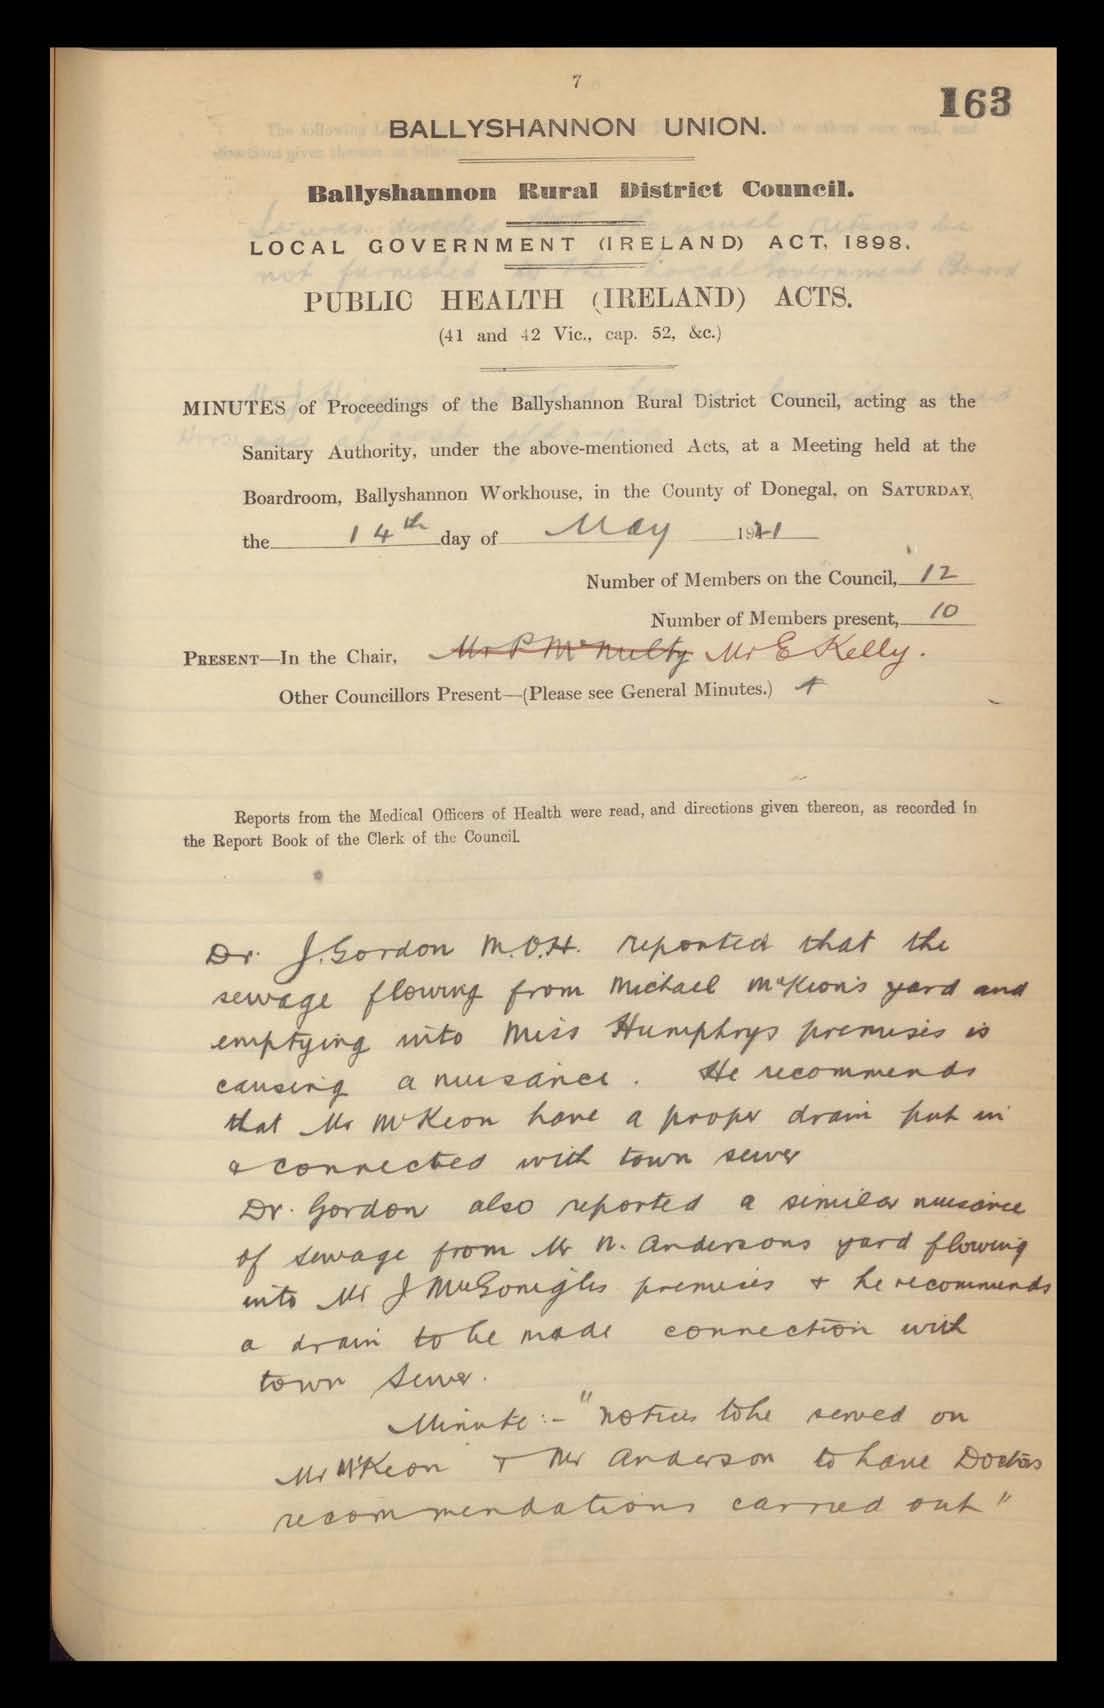 7
163
BALLYSHANNON UNION.
Ballyshannon Rural District Council.
LOCAL GOVERNMENT (IRELAND) ACT, 1898.
PUBLIC HEALTH (IRELAND) ACTS.
(41 and 42 Vic., cap. 52, &c.)
MINUTES of Proceedings of the Ballyshannon Rural District Council, acting as the
Sanitary Authority, under the above-mentioned Acts, at a Meeting held at the
Boardroom, Ballyshannon Workhouse, in the County of Donegal, on SATURDAY,
the 14th day of May 1921
Number of Members on the Council, 12
Number of Members present, 10
PRESENT—In the Chair, Mr P McNulty Mr E Kelly.
Other Councillors Present—(Please see General Minutes.)
Reports from the Medical Officers of Health were read, and directions given thereon, as recorded in
the Report Book of the Clerk of the Council.
Dr. J. Gordon M.O.H. reported that the
sewage flowing from Michael McKeon's yard and
emptying into Miss Humphrys premises is
causing a nuisance. He recommends
that Mr McKeon have a proper drain put in
& connected with town sewer
Dr. Gordon also reported a similar nuisance
of sewage from Mr N. Andersons yard flowing
into Mr J McGonigles premises & he recommends
a drain to be made connection with
town sewer.
Minute:- "Notices to be served on
Mr McKeon & Mr Anderson to have Doctors
recommendations carried out"